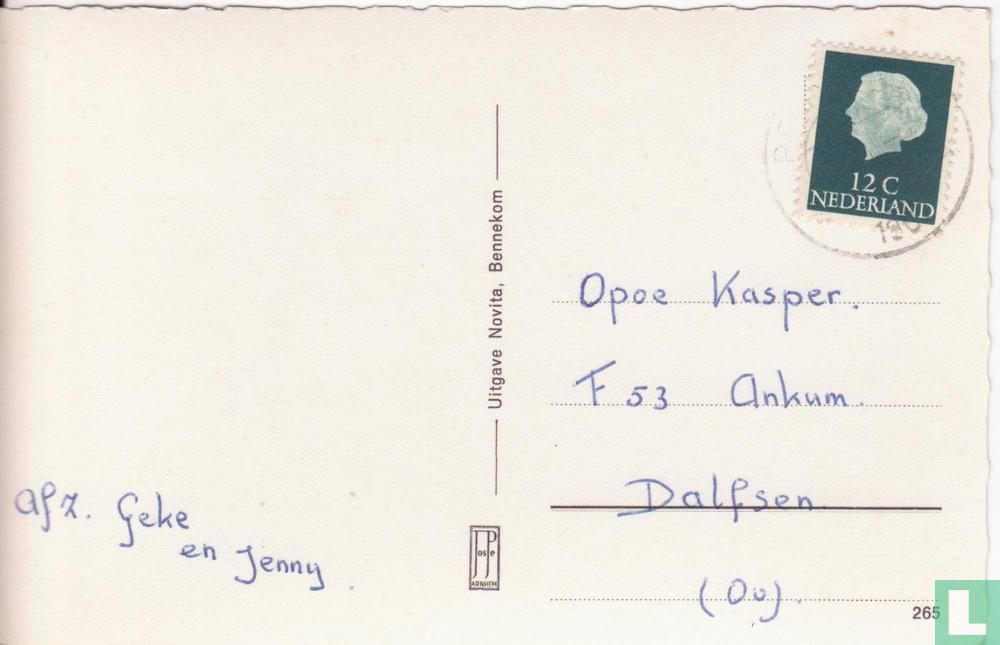 12 C
NEDERLAND
Uitgave Novita, Bennekom
Opoe Kasper.
F 53 Ankum.
Dalfsen
(Ov).
Afz. Geke
en Jenny.
JosPe
ARNHEM
265
L